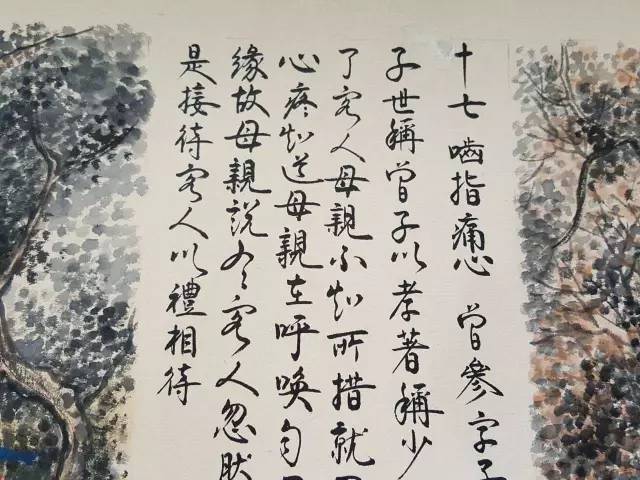 十七 嚙指痛心 曾參字子
子世稱曾子以孝著稱少
了客人母親不知所措就
心疼知道母親在呼喚自
緣故母親說有客人忽然
是接待客人以禮相待